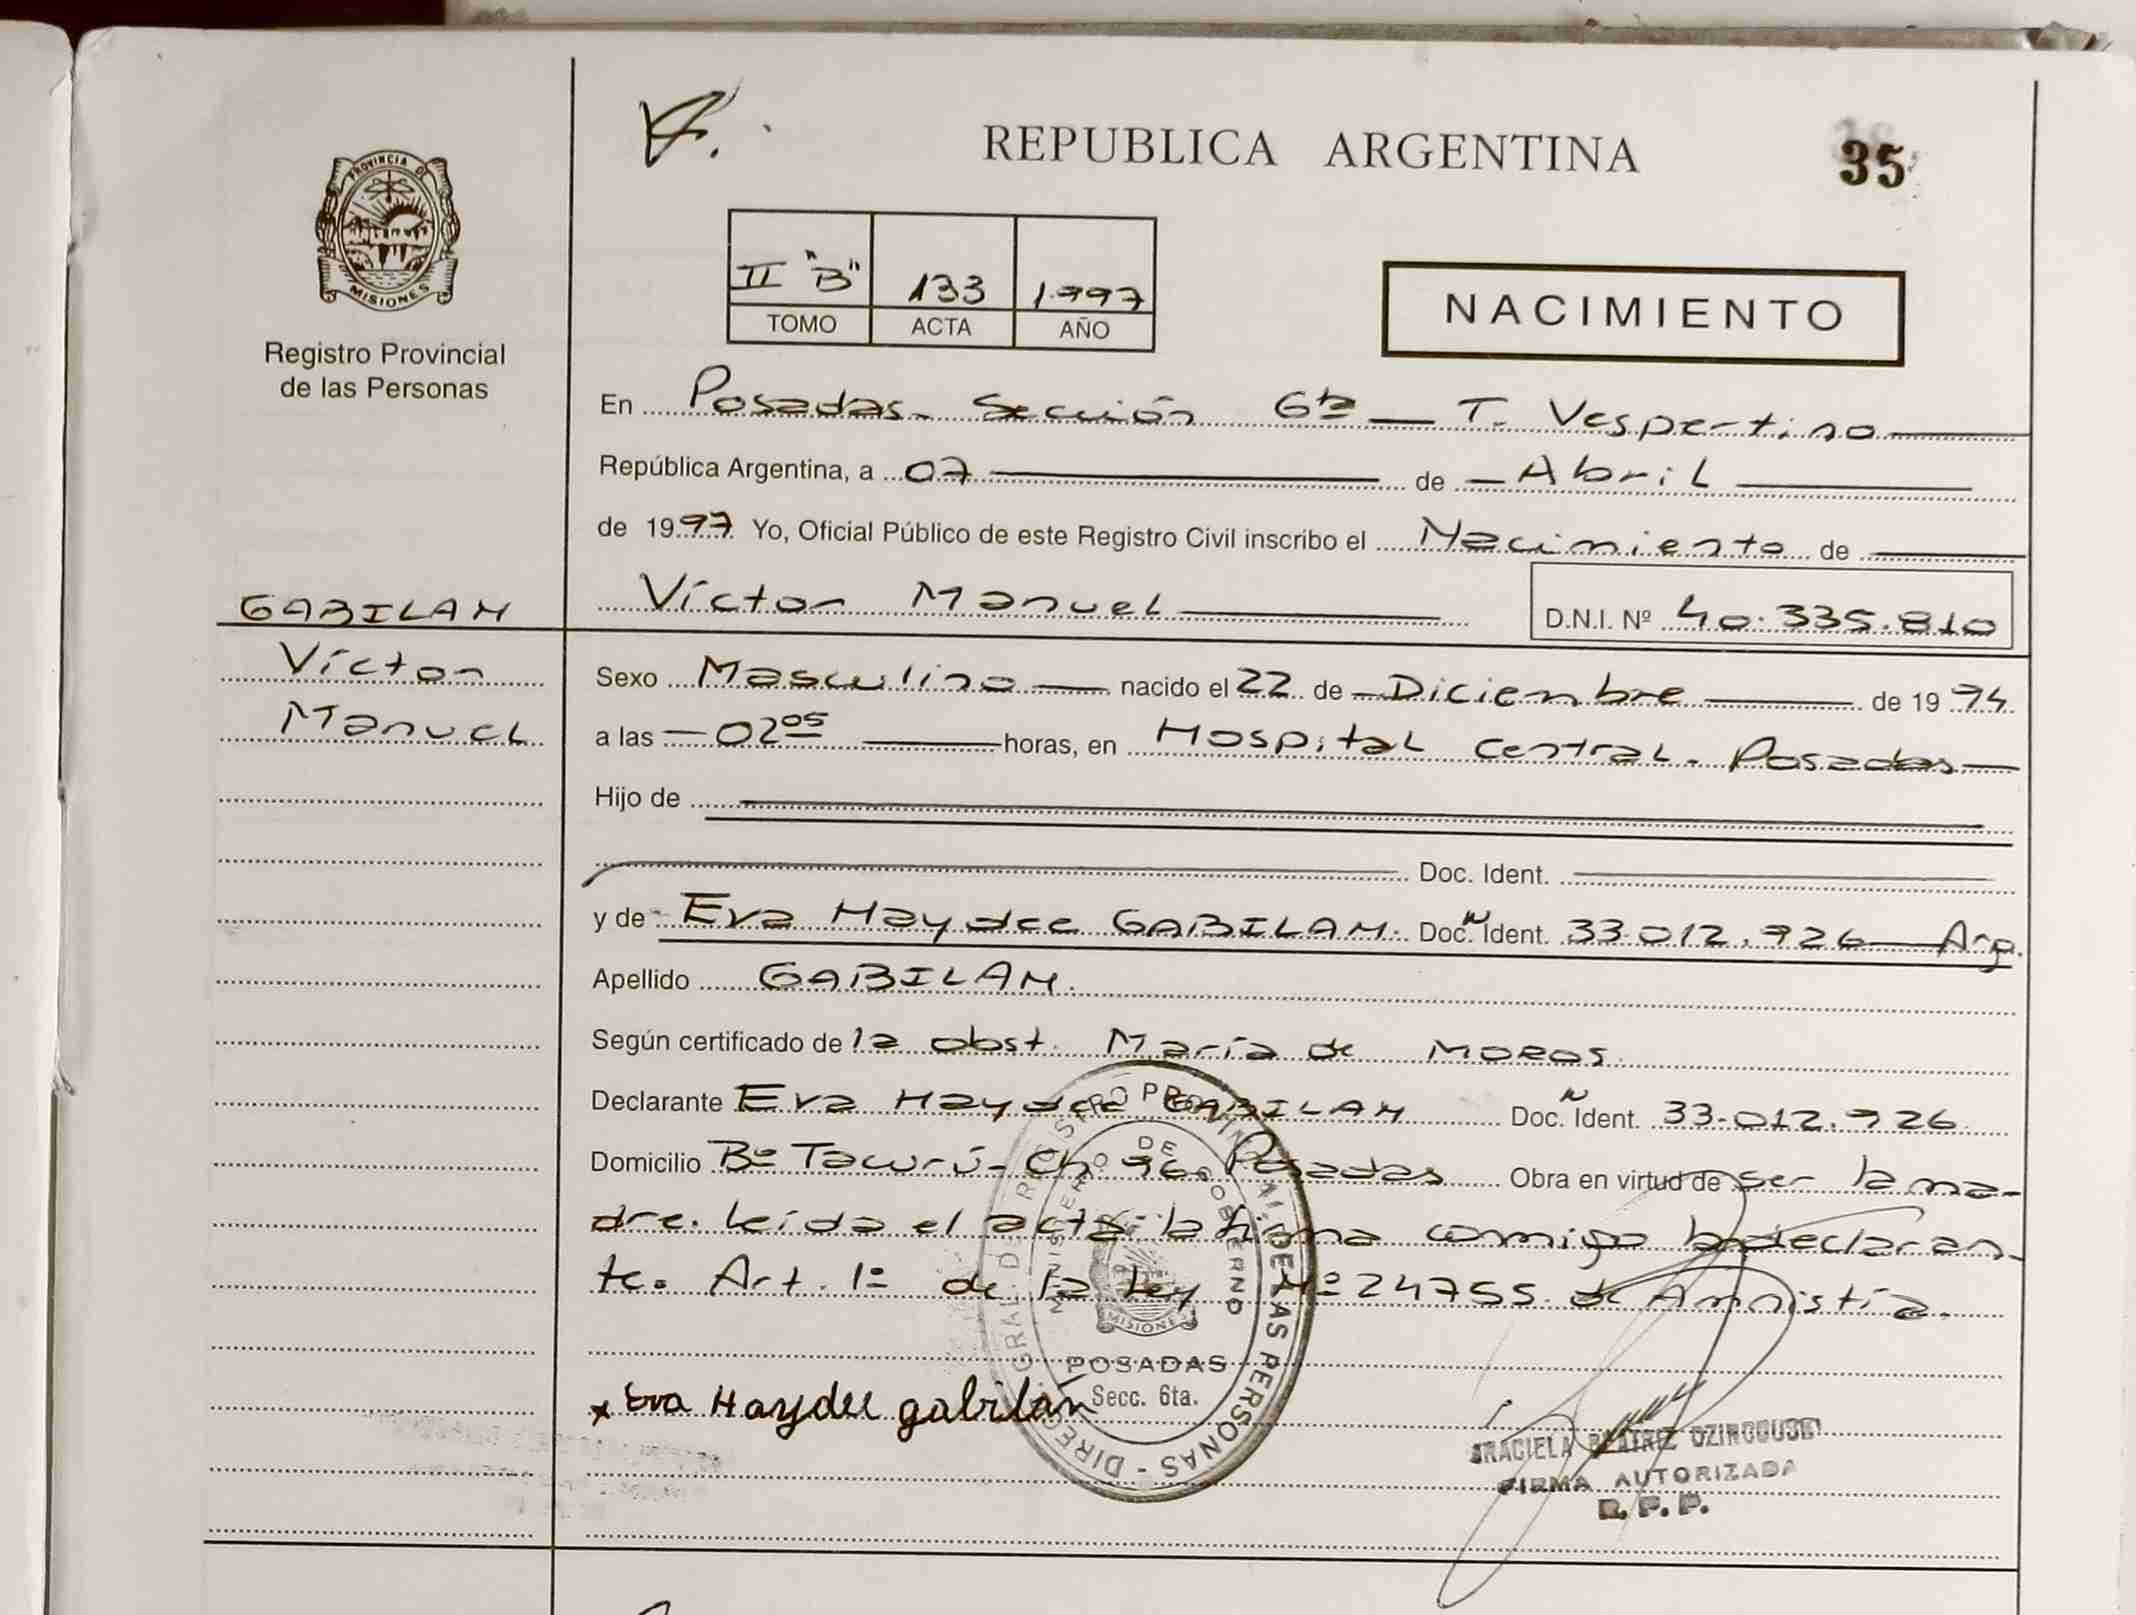 REPUBLICA ARGENTINA
35
PROVINCIA DE
MISIONES
Registro Provincial
de las Personas
II "B" 133 1.997
TOMO ACTA AÑO
NACIMIENTO
En Posadas- Sección 6ta — T. Vespertino
República Argentina, a 07 de Abril
de 1997 Yo, Oficial Público de este Registro Civil inscribo el Nacimiento de
GABILAN
Víctor Manuel D.N.I. Nº 40.335.810
Víctor
Manuel
Sexo Masculino nacido el 22 de Diciembre de 1994
a las 02 05 horas, en Hospital Central. Posadas
Hijo de
Doc. Ident.
y de Eva Haydee GABILAN. Doc. N Ident. 33.012.926 Arg.
Apellido GABILAN.
Según certificado de la obst. María de MOROS.
Declarante Eva Haydee GABILAN Doc. N Ident. 33.012.926
Domicilio Bº Tacurú- Ch. 96. Posadas Obra en virtud de ser la ma-
dre. Leída el acta la firma comigo la declaran-
te. Art. 1º de la Ley Nº 24755 de Amnistía.
x Eva Haydee gabilán
DIREC. GRAL. DE REGISTRO PROVINCIAL DE LAS PERSONAS -
MINISTERIO DE GOBIERNO
MISIONES
POSADAS
Secc. 6ta.
GRACIELA BEATRIZ
FIRMA AUTORIZADA
R. P. P.